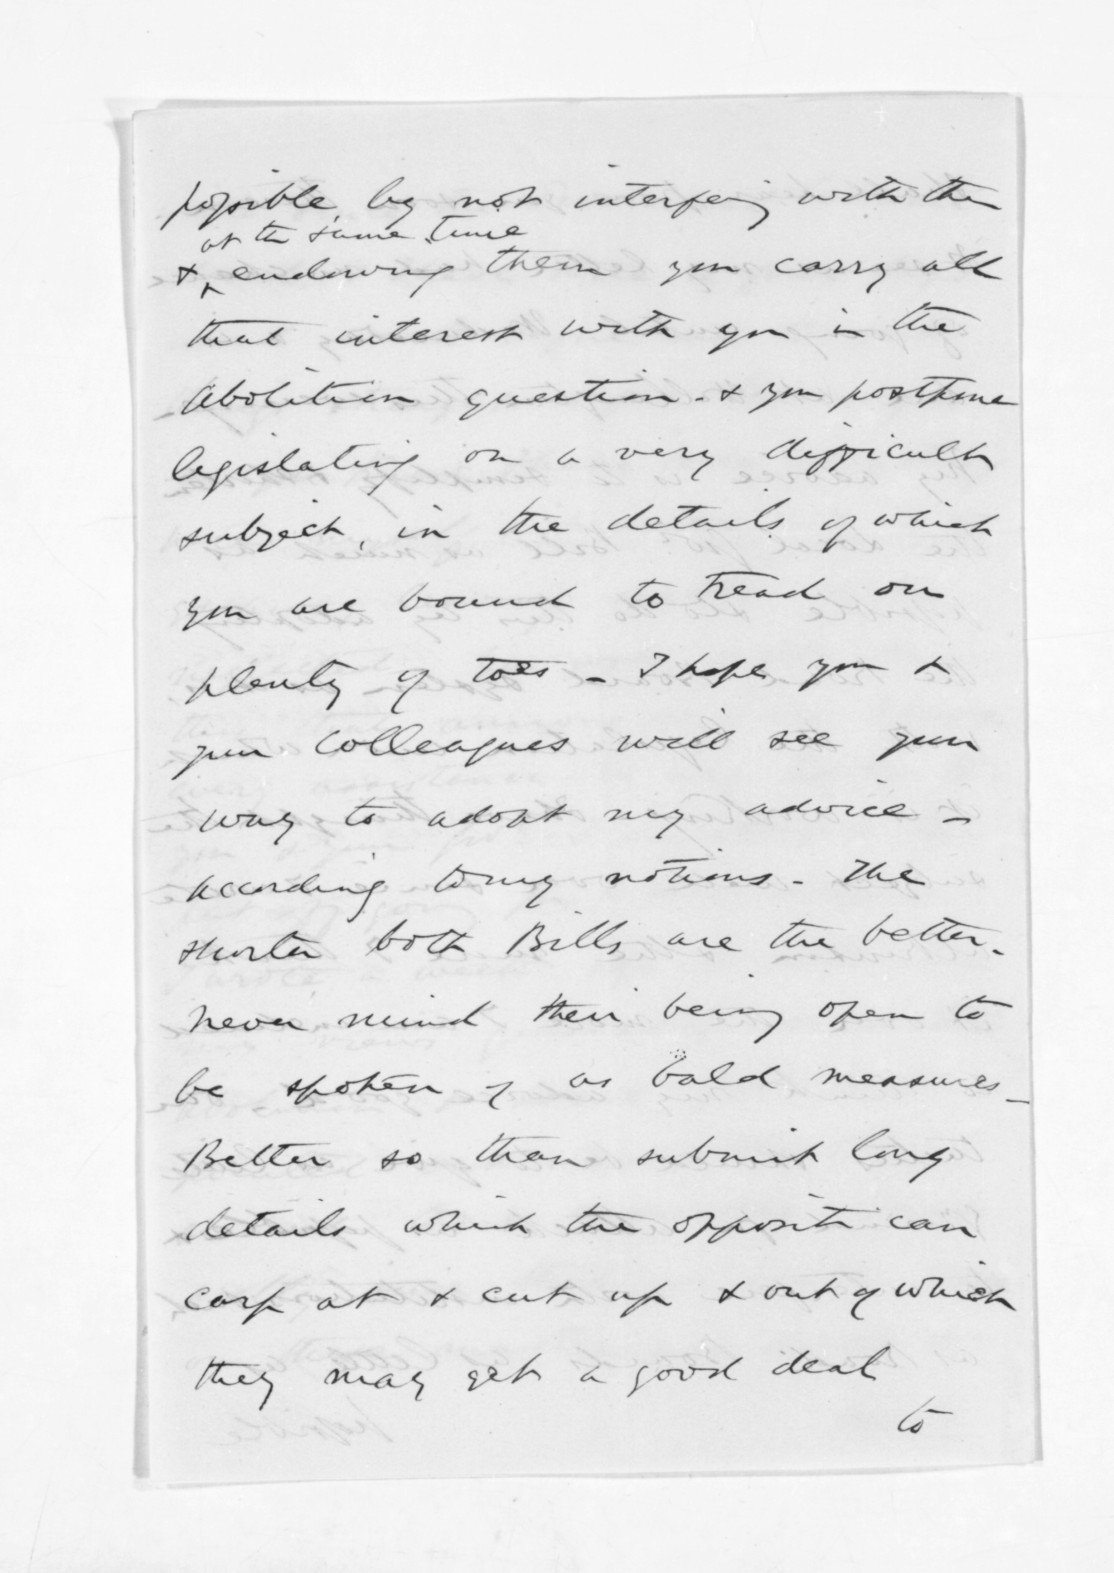 possible, by not interfering with them
at the same time
& ^ endowing them you carry all
that interest with you in the
Abolition question. & you postpone
legislating on a very difficult
subject, in the details of which
you are bound to tread on
plenty of toes – I hope you &
your colleagues will see your
way to adopt my advice –
according to my notions. The
shorter both Bills are the better.
never mind their being open to
be spoken of as bald measures –
Better so than submit long
details which the opposite can
carp at & cut up & out of which
they may get a good deal
to